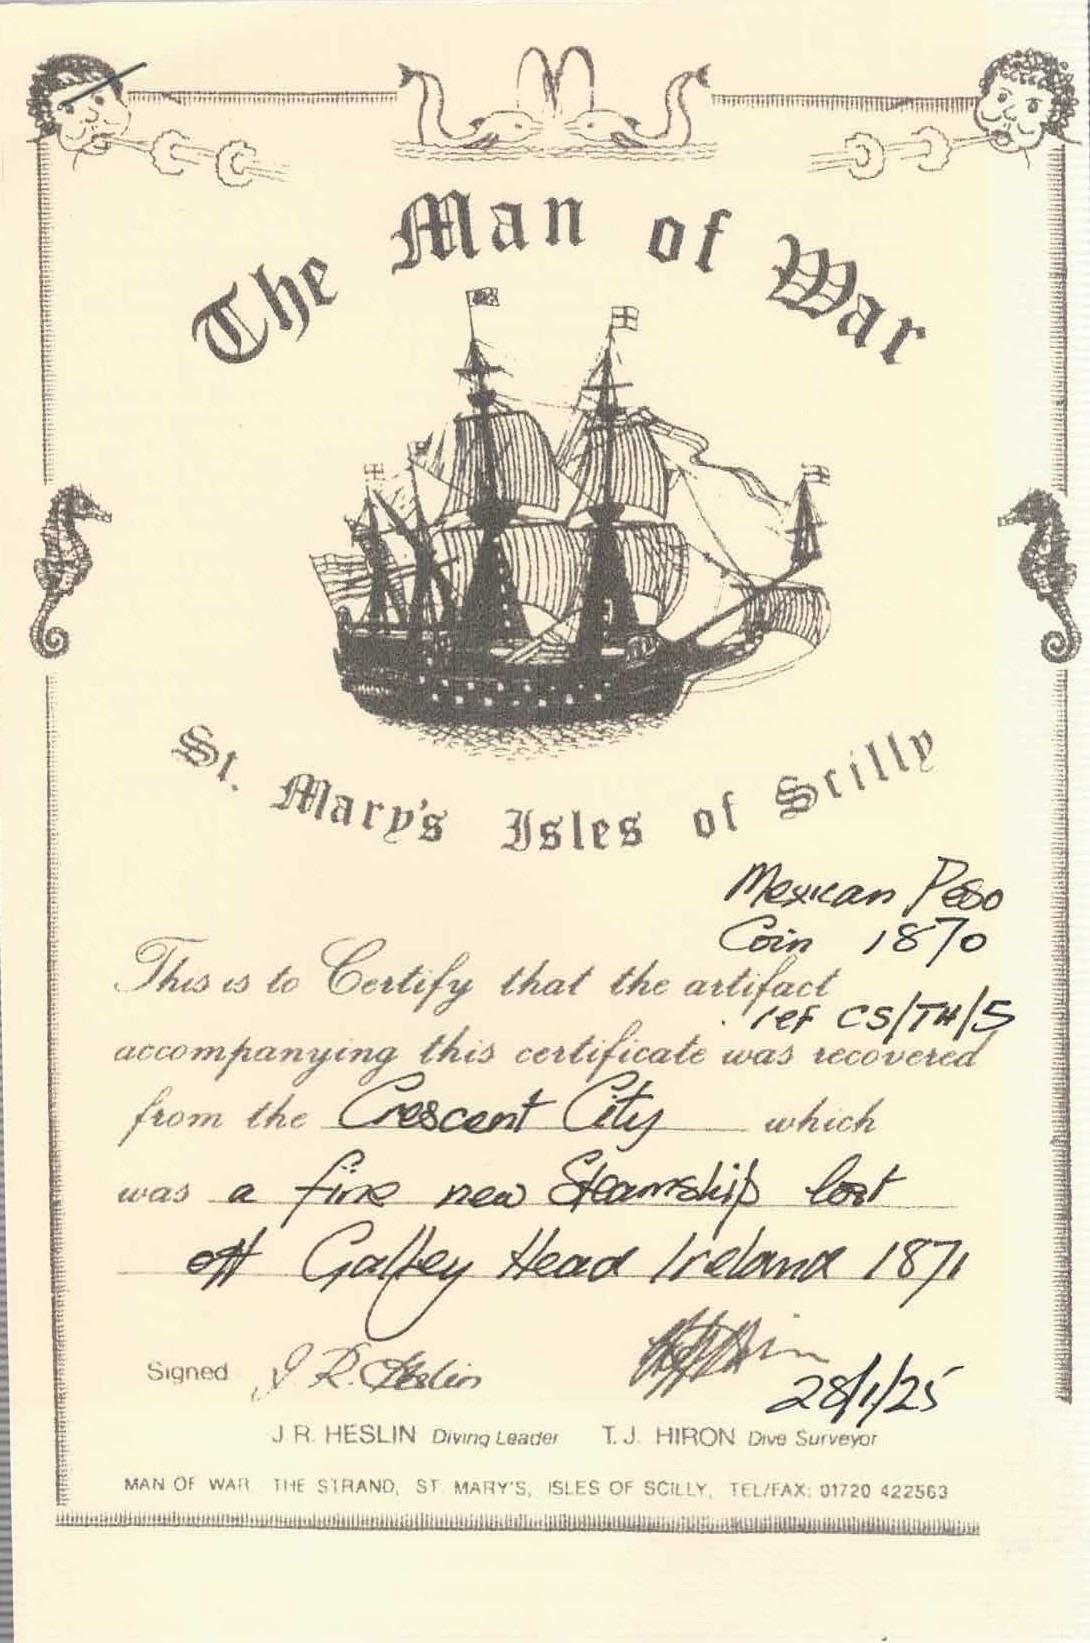 The Man of War
St. Mary's Isles of Scilly
Mexican Peso
Coin 1870
This is to Certify that the artifact
ref CS/TH/5
accompanying this certificate was recovered
from the Crescent City which
was a fine new Steamship lost
off Galley Head Ireland 1871
Signed J. R. Heslin
28/1/25
J R. HESLIN Diving Leader T. J. HIRON Dive Surveyor
MAN OF WAR THE STRAND, ST MARY'S, ISLES OF SCILLY, TEL/FAX: 01720 422563